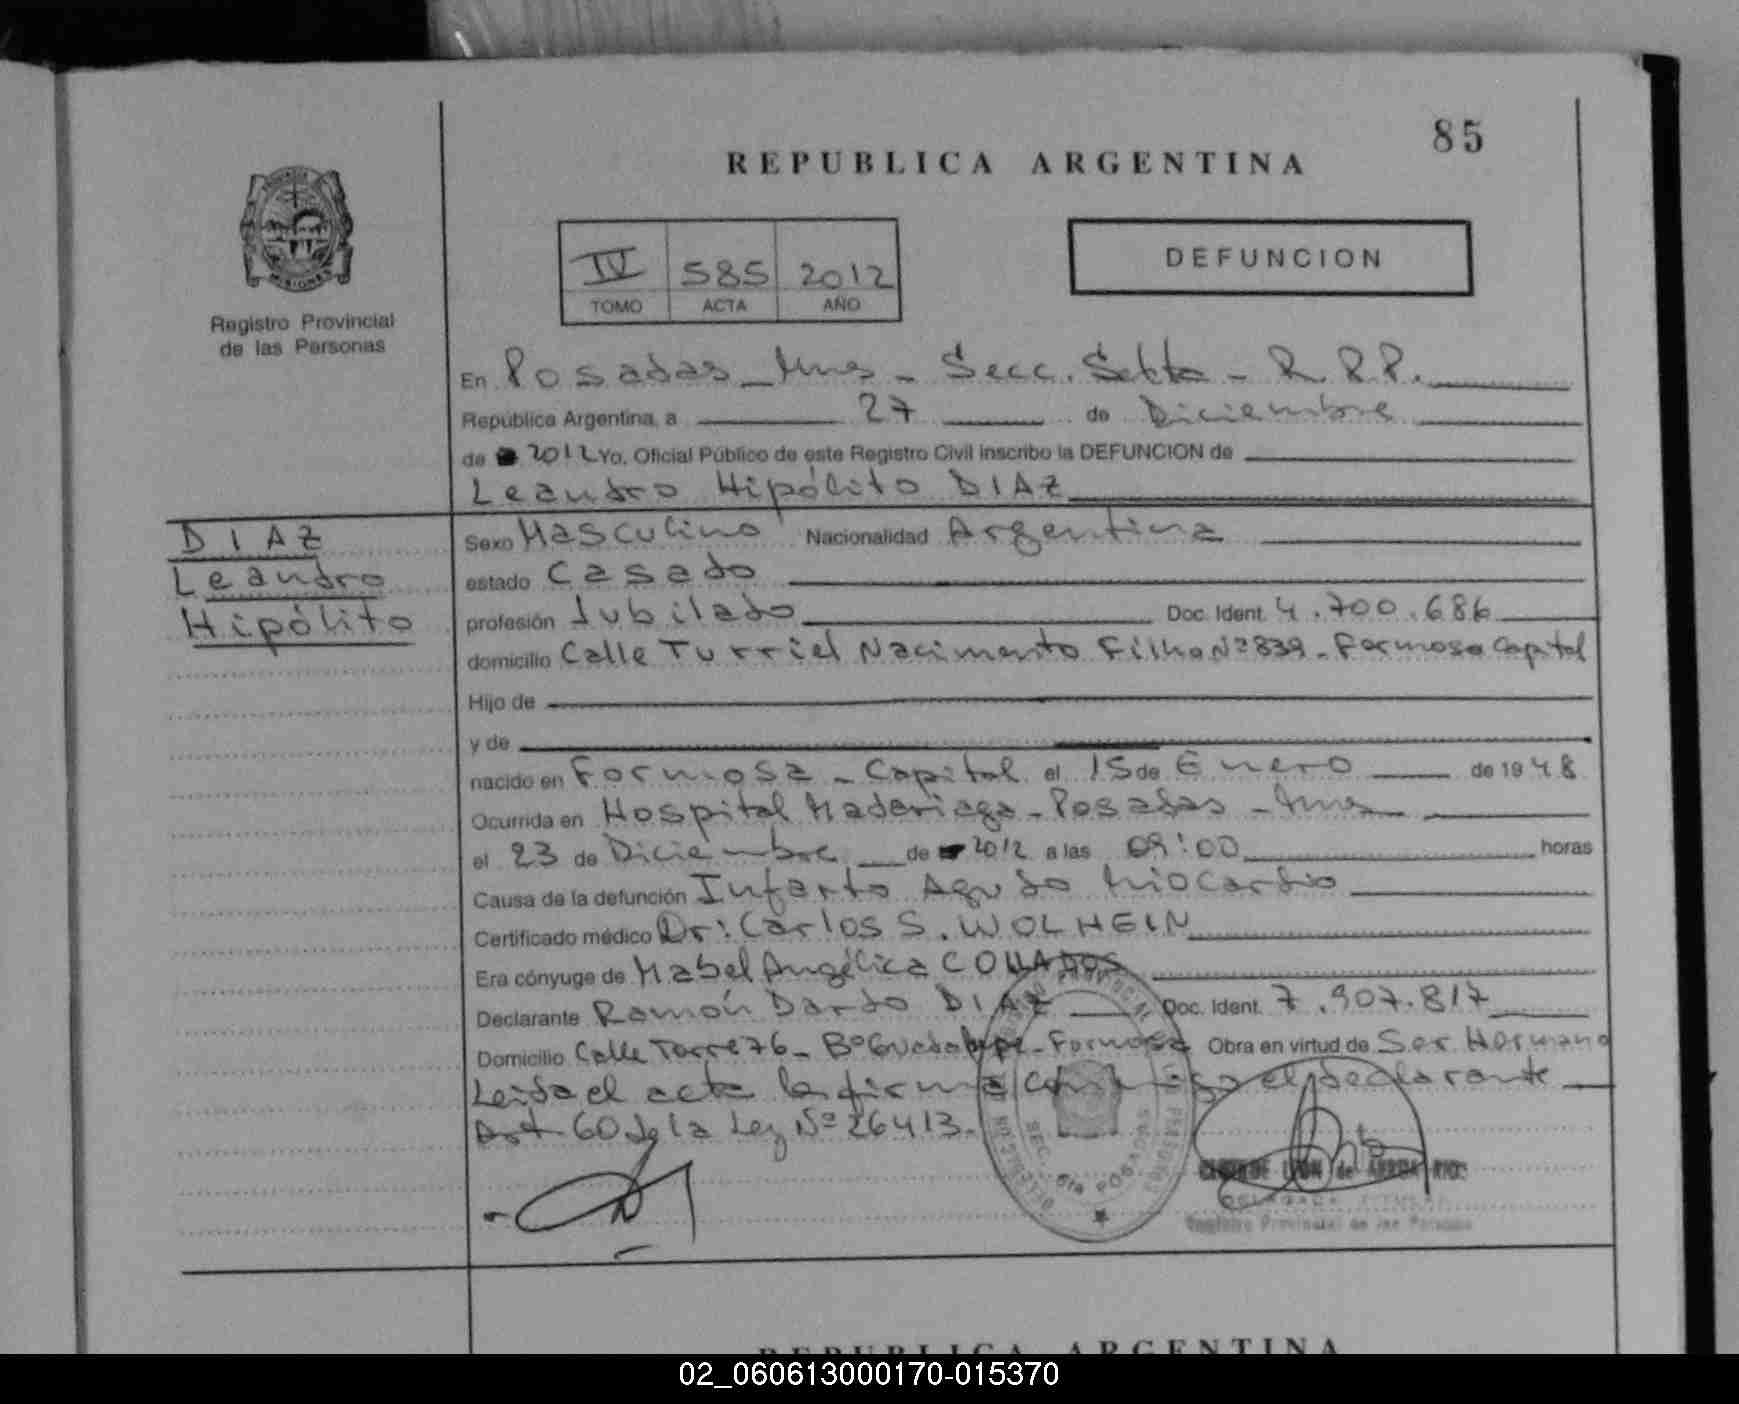 85
REPUBLICA ARGENTINA
IV 585 2012
TOMO ACTA AÑO
DEFUNCION
PROVINCIA
MISIONES
Registro Provincial
de las Personas
En Posadas - Mnes - Secc. Sexta - R.P.P.
República Argentina, a 27 de Diciembre
de 2012 Yo, Oficial Público de este Registro Civil inscribo la DEFUNCION de
Leandro Hipólito DIAZ
DIAZ
Leandro
Hipólito
Sexo Masculino Nacionalidad Argentina
estado Casado
profesión Jubilado Doc. Ident. 4.700.686
domicilio Calle Turriel Nacimento Filho Nº 839 - Formosa Capital
Hijo de
y de
nacido en Formosa - Capital el 15 de Enero de 1948
Ocurrida en Hospital Madariaga - Posadas - Mnes
el 23 de Diciembre de 2012 a las 09:00 horas
Causa de la defunción Infarto Agudo Miocardio
Certificado médico Dr: Carlos S. WOLHEIN
Era cónyuge de Mabel Angélica COLLADOS
Declarante Ramón Dardo DIAZ Doc. Ident. 7.907.817
Domicilio Calle Torre 76 - Bº Guadalupe - Formosa Obra en virtud de Ser Hermano
Leida el acta la firma conmigo el declarante
Art 60 de la Ley Nº 26413.
SEC. 6ta POSADAS
de LEON de
DELEGADA TITULAR
Registro Provincial de las Personas
REPUBLICA ARGENTINA
02_060613000170-015370